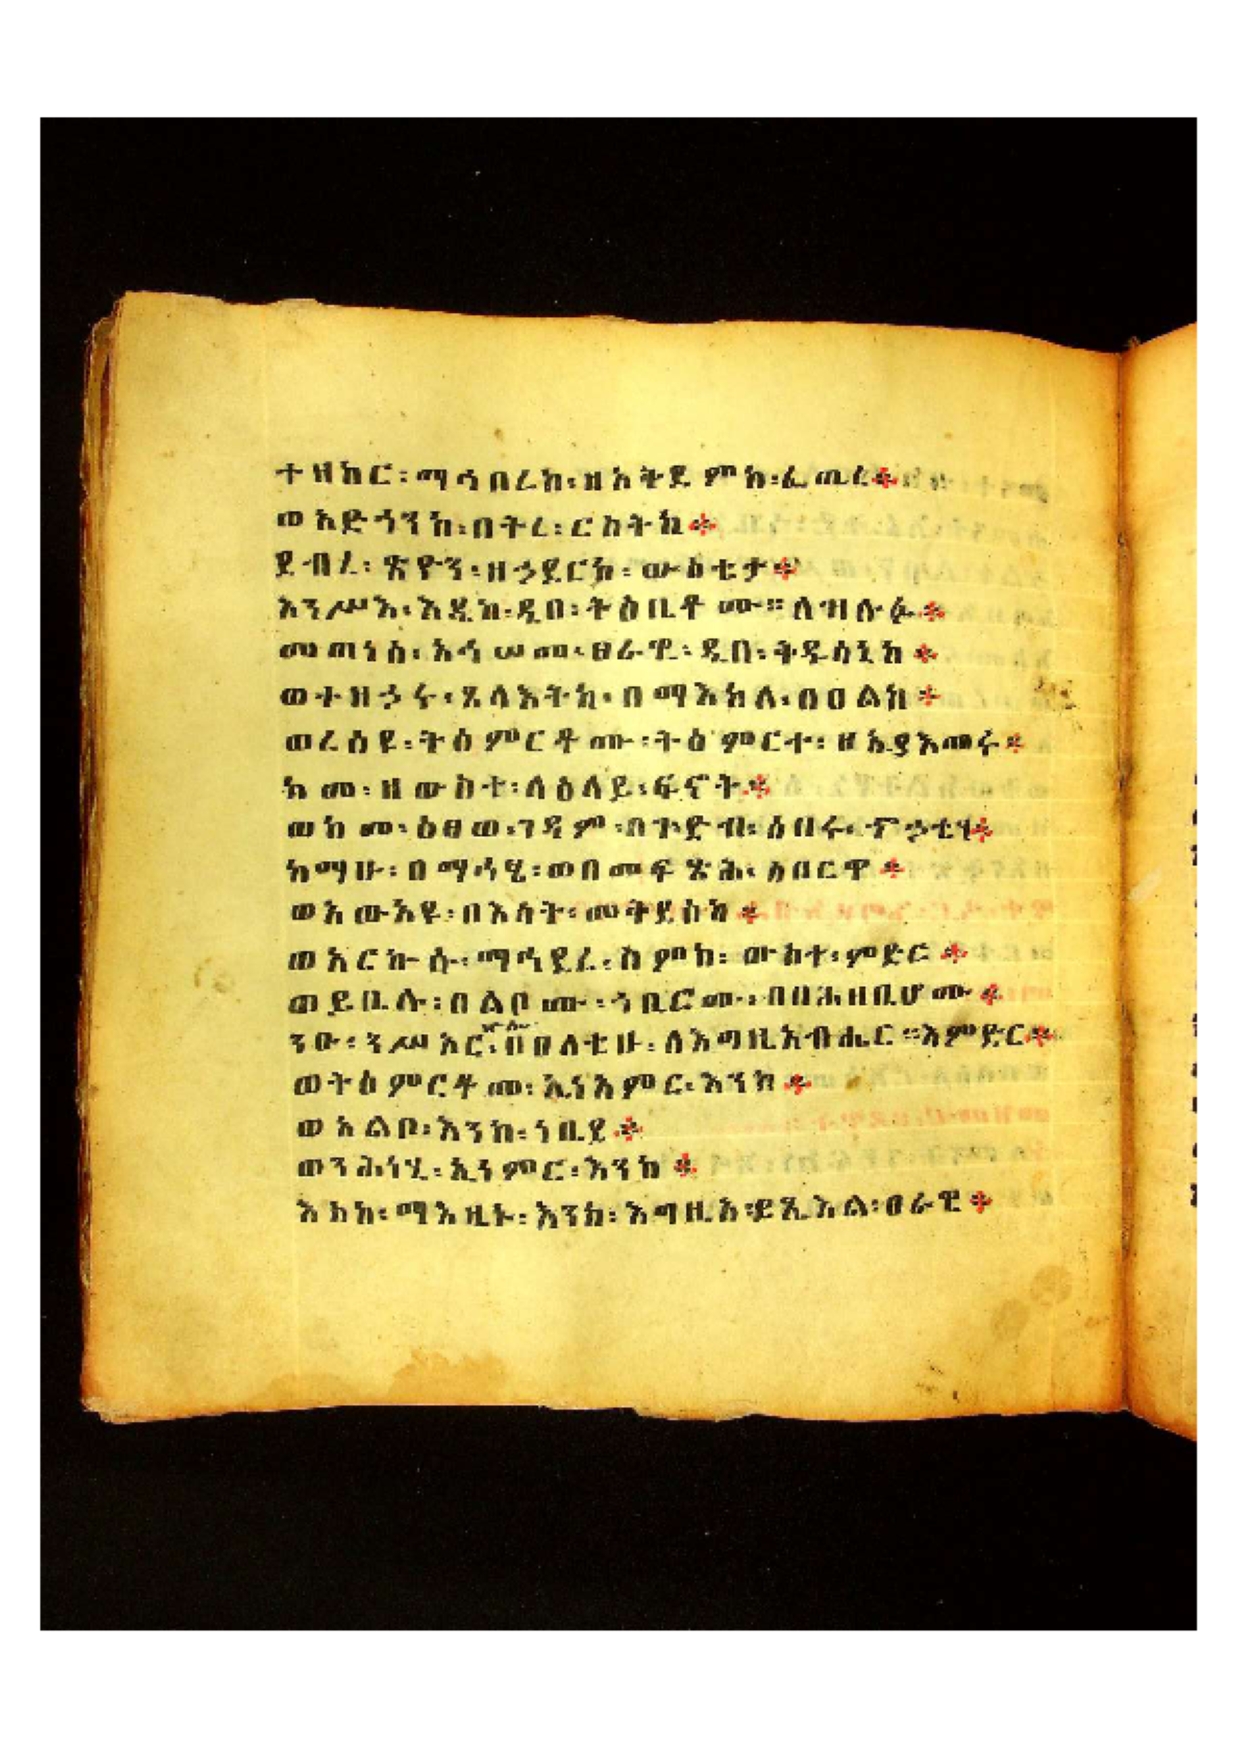 ተዘከር፡ማኅበረከ፡ዘአትደምከ፡ፈጢረ፨
ወአድኀንከ፡በትረ፡ርስትከ፨
ደብረ፡ጽዮን፡ዘኃደርከ፡ውስቲታ፨
አንሥእ፡እዴከ፡ዲበ፡ትዕቢቶሙ፡፡ለዝሉፉ፨
መጠነ፡አኅሠመ፡ፀራዊ፡ዲበ፡ቅዱሳኒከ፨
ወተዝኃሩ፡ጸላእትከ፡በማእከለ፡በዐልከ፨
ወረሰዩ፡ትዕምርቶሙ፡ትዕምርተ፡ዘኢያእመሩ፨
ከመ፡ዘውስተ፡ለዕለይ፡ፍኖት፨
ወከመ፡ዕፀወ፡ገዳም፡በጉድብ፡ሰበሩ፡ኆኃቲሃ፨
ከማሁ፡በማኅፄ፡ወበመፍጽሕ፡ሰበርዋ፨
ወአውአዩ፡በእሳት፡መቅደስከ፨
ወአርኩሱ፡ማኅደረ፡ስምከ፡ውስተ፡ምድር፨
ወይቤሉ፡በልቦሙ፡ኅቡሮሙ፡በበሕዘቢሆሙ፨
ንዑ፡ንሥአር፡በዐለቲሁ፡ለእግዚአብሔር፡፡እምድር፨
ወትዕምርቶመ፡ኢነአምር፡እንከ፨
ወአልቦ፡እንከ፡ነቢየ፨
ወንሕነሂ፡ኢንምር፡እንከ፨
እስከ፡ማእዜኑ፡እንከ፡እግዚአ፡ይጼእል፡ፀራዊ፨